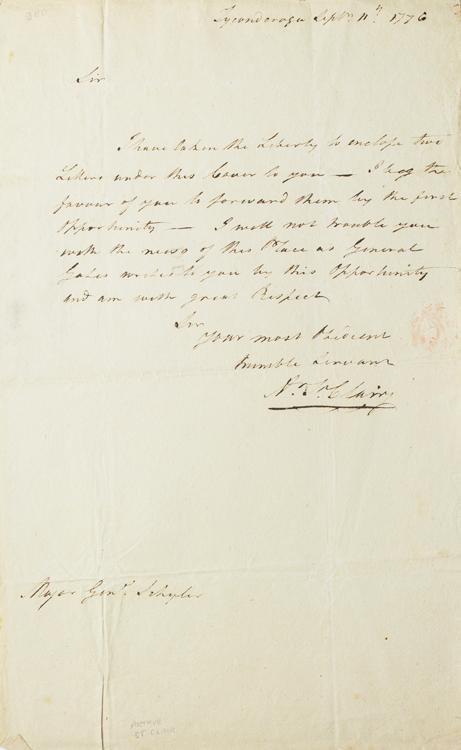 300
Ticonderoga Septr. 11th 1776
Sir
I have taken the Liberty to enclose two
Letters under this Cover to you — I beg the
favour of you to forward them by the first
Opportunity — I will not trouble you
with the news of this Place as General
Gates writes to you by this Opportunity
and am with great Respect
Sir
Your most Obedient
humble Servant
Ar. St. Clair
Major Genl. Schuyler
ARTHUR
ST CLAIR